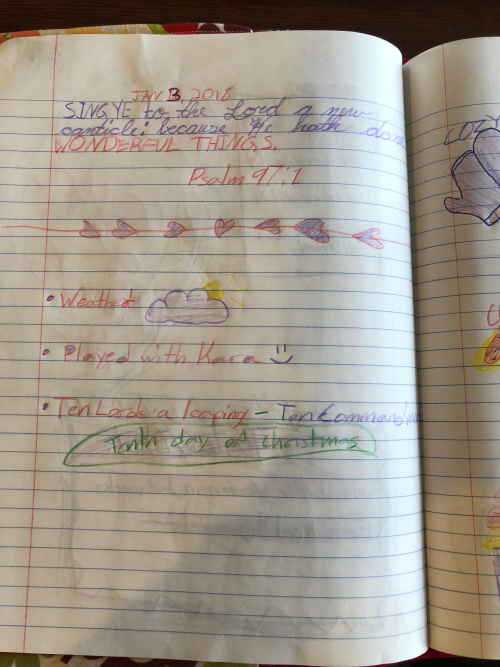 JAN 3, 2018
SING YE to the Lord a new
canticle: because He hath done
WONDERFUL THINGS.
Psalm 97:1
• Weather
• Played with Kara
• Ten Lords a leaping - Ten Command
Tenth day of christmas